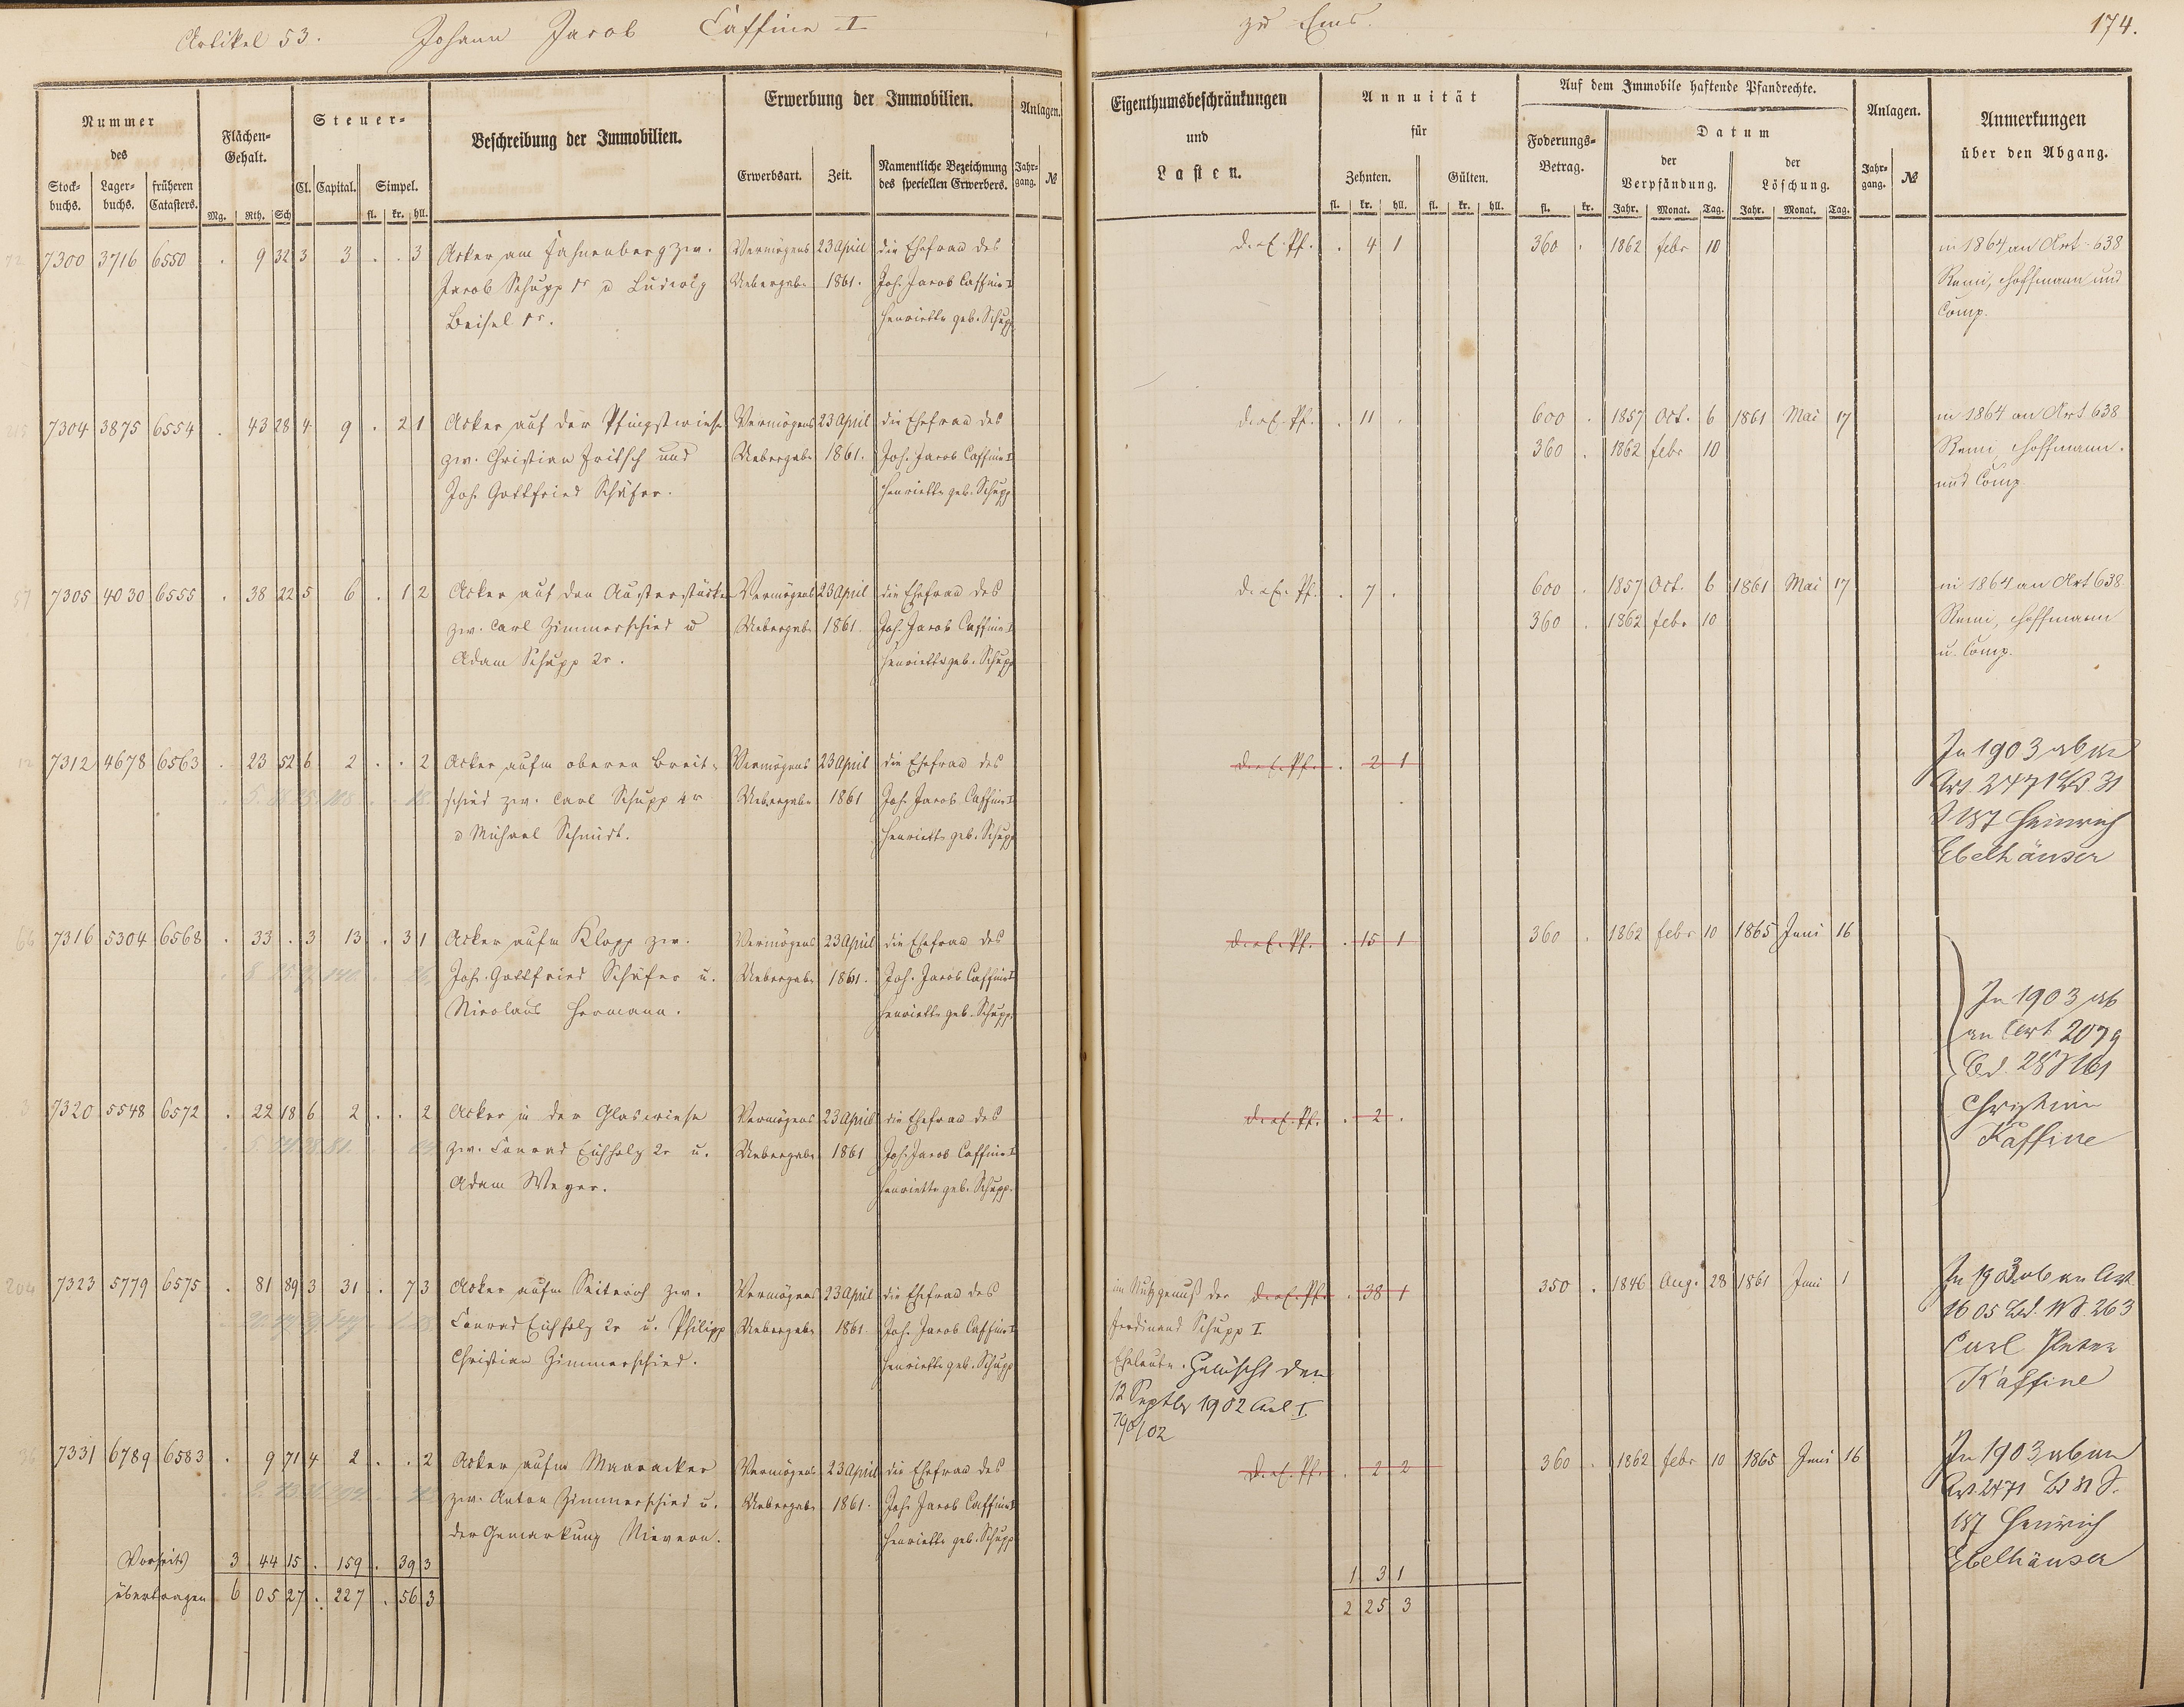 Artikel 53. Johann Jacob Caffine I zu Ems. 174.
Nummer des
Stockbuchs. Lagerbuchs. früheren Catasters.
Flächen-Gehalt.
Mg. Rth. Sch
Steuer-
Cl. Capital. Simpel.
fl. kr. hll.
Beschreibung der Immobilien.
Erwerbung der Immobilien.
Erwerbsart. Zeit. Namentliche Bezeichnung des speciellen Erwerbers.
Anlagen.
Jahrgang. №
Eigenthumsbeschränkungen
und
Lasten.
Annuität
für
Zehnten. Gülten.
fl. kr. hll. fl. kr. hll.
Auf dem Immobile haftende Pfandrechte.
Foderungs-Betrag.
fl. kr.
Datum
der Verpfändung. der Löschung.
Jahr. Monat. Tag. Jahr. Monat. Tag.
Anlagen.
Jahrgang. №
Anmerkungen
über den Abgang.
7300 3716 6550 . 9 32 3 3 . . 3 Acker am Fahnenberg zw. Vermögens 23 April die Ehefrau des . 4 1 360 . 1862 febr 10 in 1864 an Art. 638
Jacob Schupp 1r u Ludwig Uebergabe 1861. Joh. Jacob Caffine I Remi, Hoffmann und
Beisel 1r. Henriette geb. Schupp Comp.
7304 3875 6554 . 43 28 4 9 . 2 1 Acker auf der Pfingstwiese Vermögens 23 April die Ehefrau des . 11 . 600 . 1857 Oct. 6 1861 Mai 17 in 1864 an Art 638
zw. Christian Fritsch und Uebergabe 1861. Joh. Jacob Caffine I 360 . 1862 febr 10 Remi, Hoffmann
Joh. Gottfried Schäfer. Henriette geb. Schupp und Comp
7305 4030 6555 . 38 22 5 6 . 1 2 Acker auf den Vermögens 23 April die Ehefrau des . 7 . 600 . 1857 Oct. 6 1861 Mai 17 in 1864 an Art 638
zw. Carl Zimmerschied u Uebergabe 1861. Joh. Jacob Caffine I 360 . 1862 febr 10 Remi, Hoffmann
Adam Schupp 2r. Henriette geb. Schupp u. Comp.
7312 4678 6563 . 23 52 6 2 . . 2 Acker aufm oberen Breit- Vermögens 23 April die Ehefrau des . 2 1 In 1903 ab an
schied zw. Carl Schupp 4r Uebergabe 1861 Joh. Jacob Caffine I Art 2471 Bd. 31
u Michael Schmidt. Henriette geb. Schupp S 187 Heinrich
Ebelhäuser
7316 5304 6568 . 33 . 3 13 . 3 1 Acker aufm Klopp zw. Vermögens 23 April die Ehefrau des . 15 1 360 . 1862 febr 10 1865 Juni 16
Joh. Gottfried Schäfer u. Uebergabe 1861. Joh. Jacob Caffine I
Nicolaus Hermann. Henriette geb. Schupp.
In 1903 ab
an Art 2079
Bd. 28 S 161
Christian
Kaffine
7320 5548 6572 . 22 18 6 2 . . 2 Acker in der Glaswiese Vermögens 23 April die Ehefrau des . 2 .
zw. Conrad Eichholz 2r u. Uebergabe 1861 Joh. Jacob Caffine I
Adam Weger. Henriette geb. Schupp.
7323 5779 6575 . 81 89 3 31 . 7 3 Acker aufm Seiterich zw. Vermögens 23 April die Ehefrau des im Nutzgenuß der . 38 1 350 . 1846 Aug. 28 1861 Juni 1 In 1903 ab an Art
Conrad Eichholz 2r u. Philipp Uebergabe 1861. Joh. Jacob Caffine I Ferdinand Schupp I 1605 Bd. 263
Christian Zimmerschied. Henriette geb. Schupp Eheleute. Gelöscht den Carl Peter
12 Septbr 1902 Kaffine
7331 6789 6583 . 9 71 4 2 . . 2 Acker aufm Maaracker Vermögens 23 April die Ehefrau des . 2 2 360 . 1862 febr 10 1865 Juni 16 In 1903 ab an
zw. Anton Zimmerschied u. Uebergabe 1861. Joh. Jacob Caffine I Art. 2471 Bd 31 S.
der Gemarkung Nievern. Henriette geb. Schupp 187 Heinrich
Ebelhäuser
Vorseits 3 44 15 . 159 . 39 3 1 3 1
übertragen 6 05 27 . 227 . 56 3 2 25 3